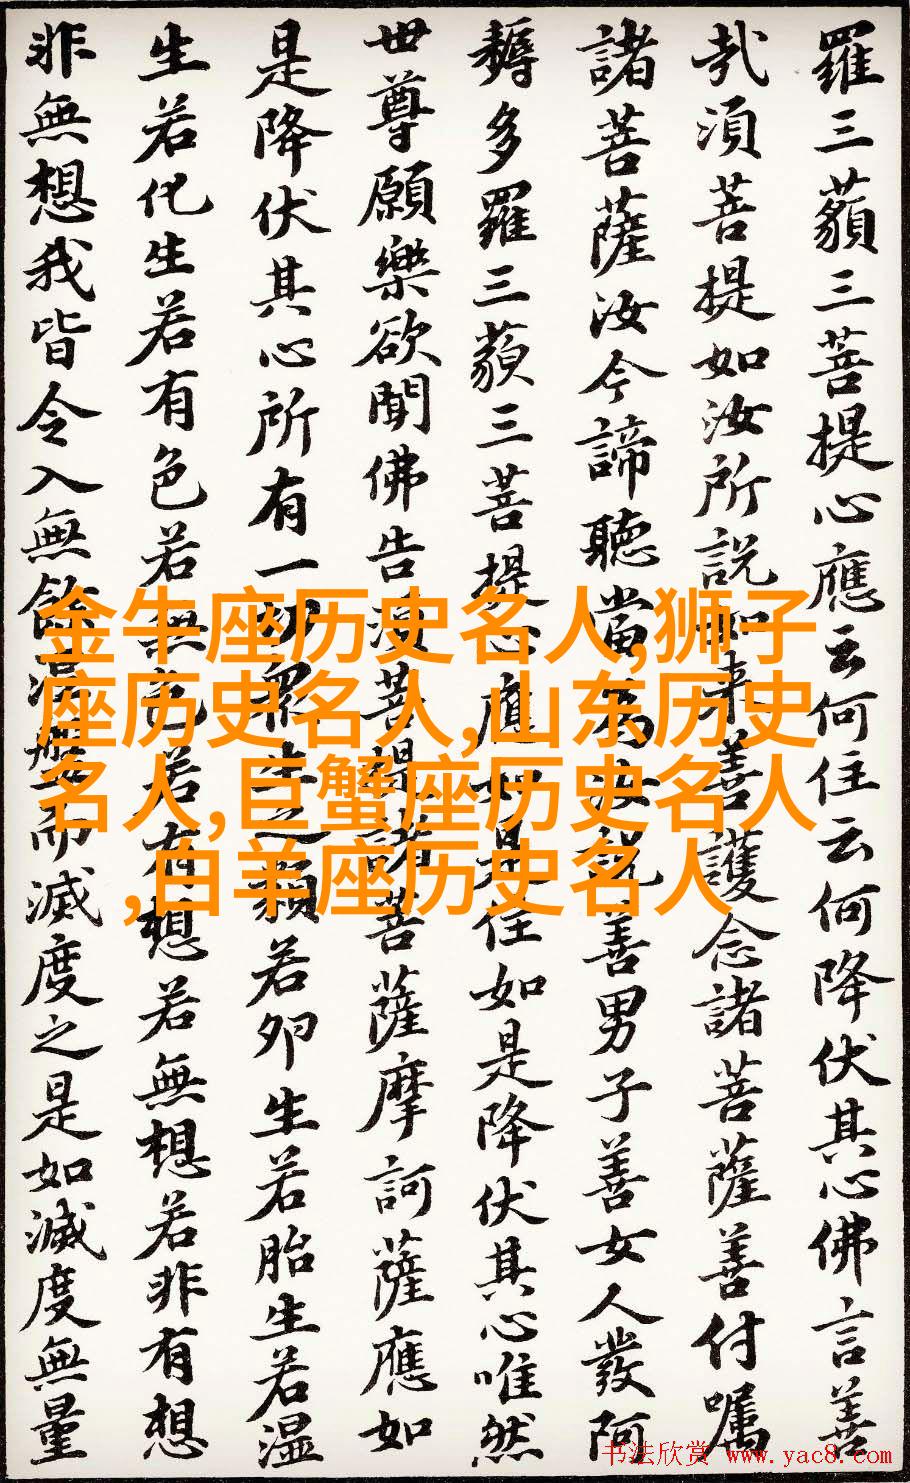 羅三藐三菩提心應云何住云何降伏其心佛言善
哉須菩提如汝所說如来善護念諸菩薩善付嘱
諸菩薩汝今諦聽當為汝說善男子善女人發阿
耨多羅三藐三菩提心應如是住如是降伏其心唯然
世尊願樂欲聞佛告須菩提諸菩薩摩訶薩應如
是降伏其心所有一切眾生之類若卵生若胎生若湿
生若化生若有色若無色若有想若無想若非有想
非無想我皆令入無餘涅槃而滅度之是如滅度無量
金牛座历史名人,狮子
座历史名人,山东历史
名人,巨蟹座历史名人
,白羊座历史名人
书法欣赏 www.yac8.com